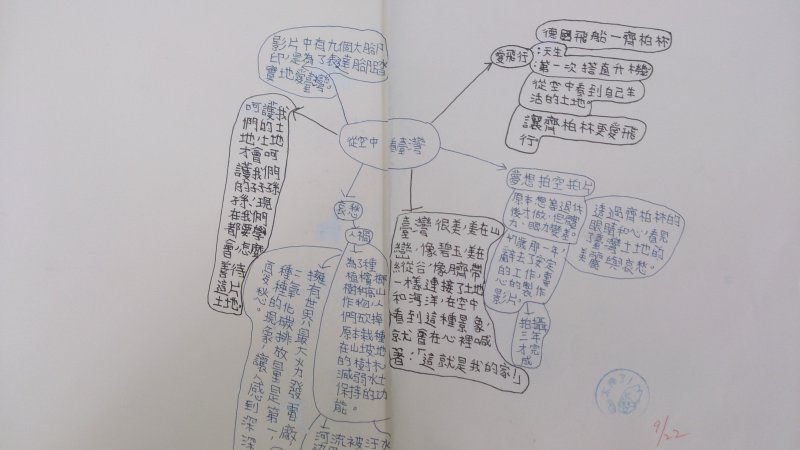 影片中有九個大腳
印,是為了表達腳踏
寶地愛臺灣。
從空中看臺灣
愛飛行
德國飛船—齊柏林
:天生
:第一次搭直升機
從空中看到自己生
活的土地。
讓齊柏林更愛飛
行
呵護我
們的土
地,土地
才會呵
護我們
的子孫
現
在我們
都
會
學
怎麼
善待
這片
土地
哀愁
人禍
為了種
植檳榔
樹
作物砍掉
原本栽種
在山坡地
的樹木
減弱水土
保持的功
能。
擁有世界最大火力發電廠,
二氧化碳排放量是第一,
種種的現象,讓人感到深深
哀愁。
河流被汙水
臺灣很美,美在山
巒,像碧玉,美在
縱谷,像臍帶
一樣連接了土地
和海洋,在空中
看到這種景象,
就會在心裡喊
著:「這就是我的家!」
夢想拍空拍片
原本想等退休
後才做,
力、眼力變差
那一年,
辭去了安定
的工作,專
心的製作
影片。
拍攝
三年
才完成
透過齊柏林的
眼睛和心,看見
臺灣土地的
美麗與哀愁。
9/22